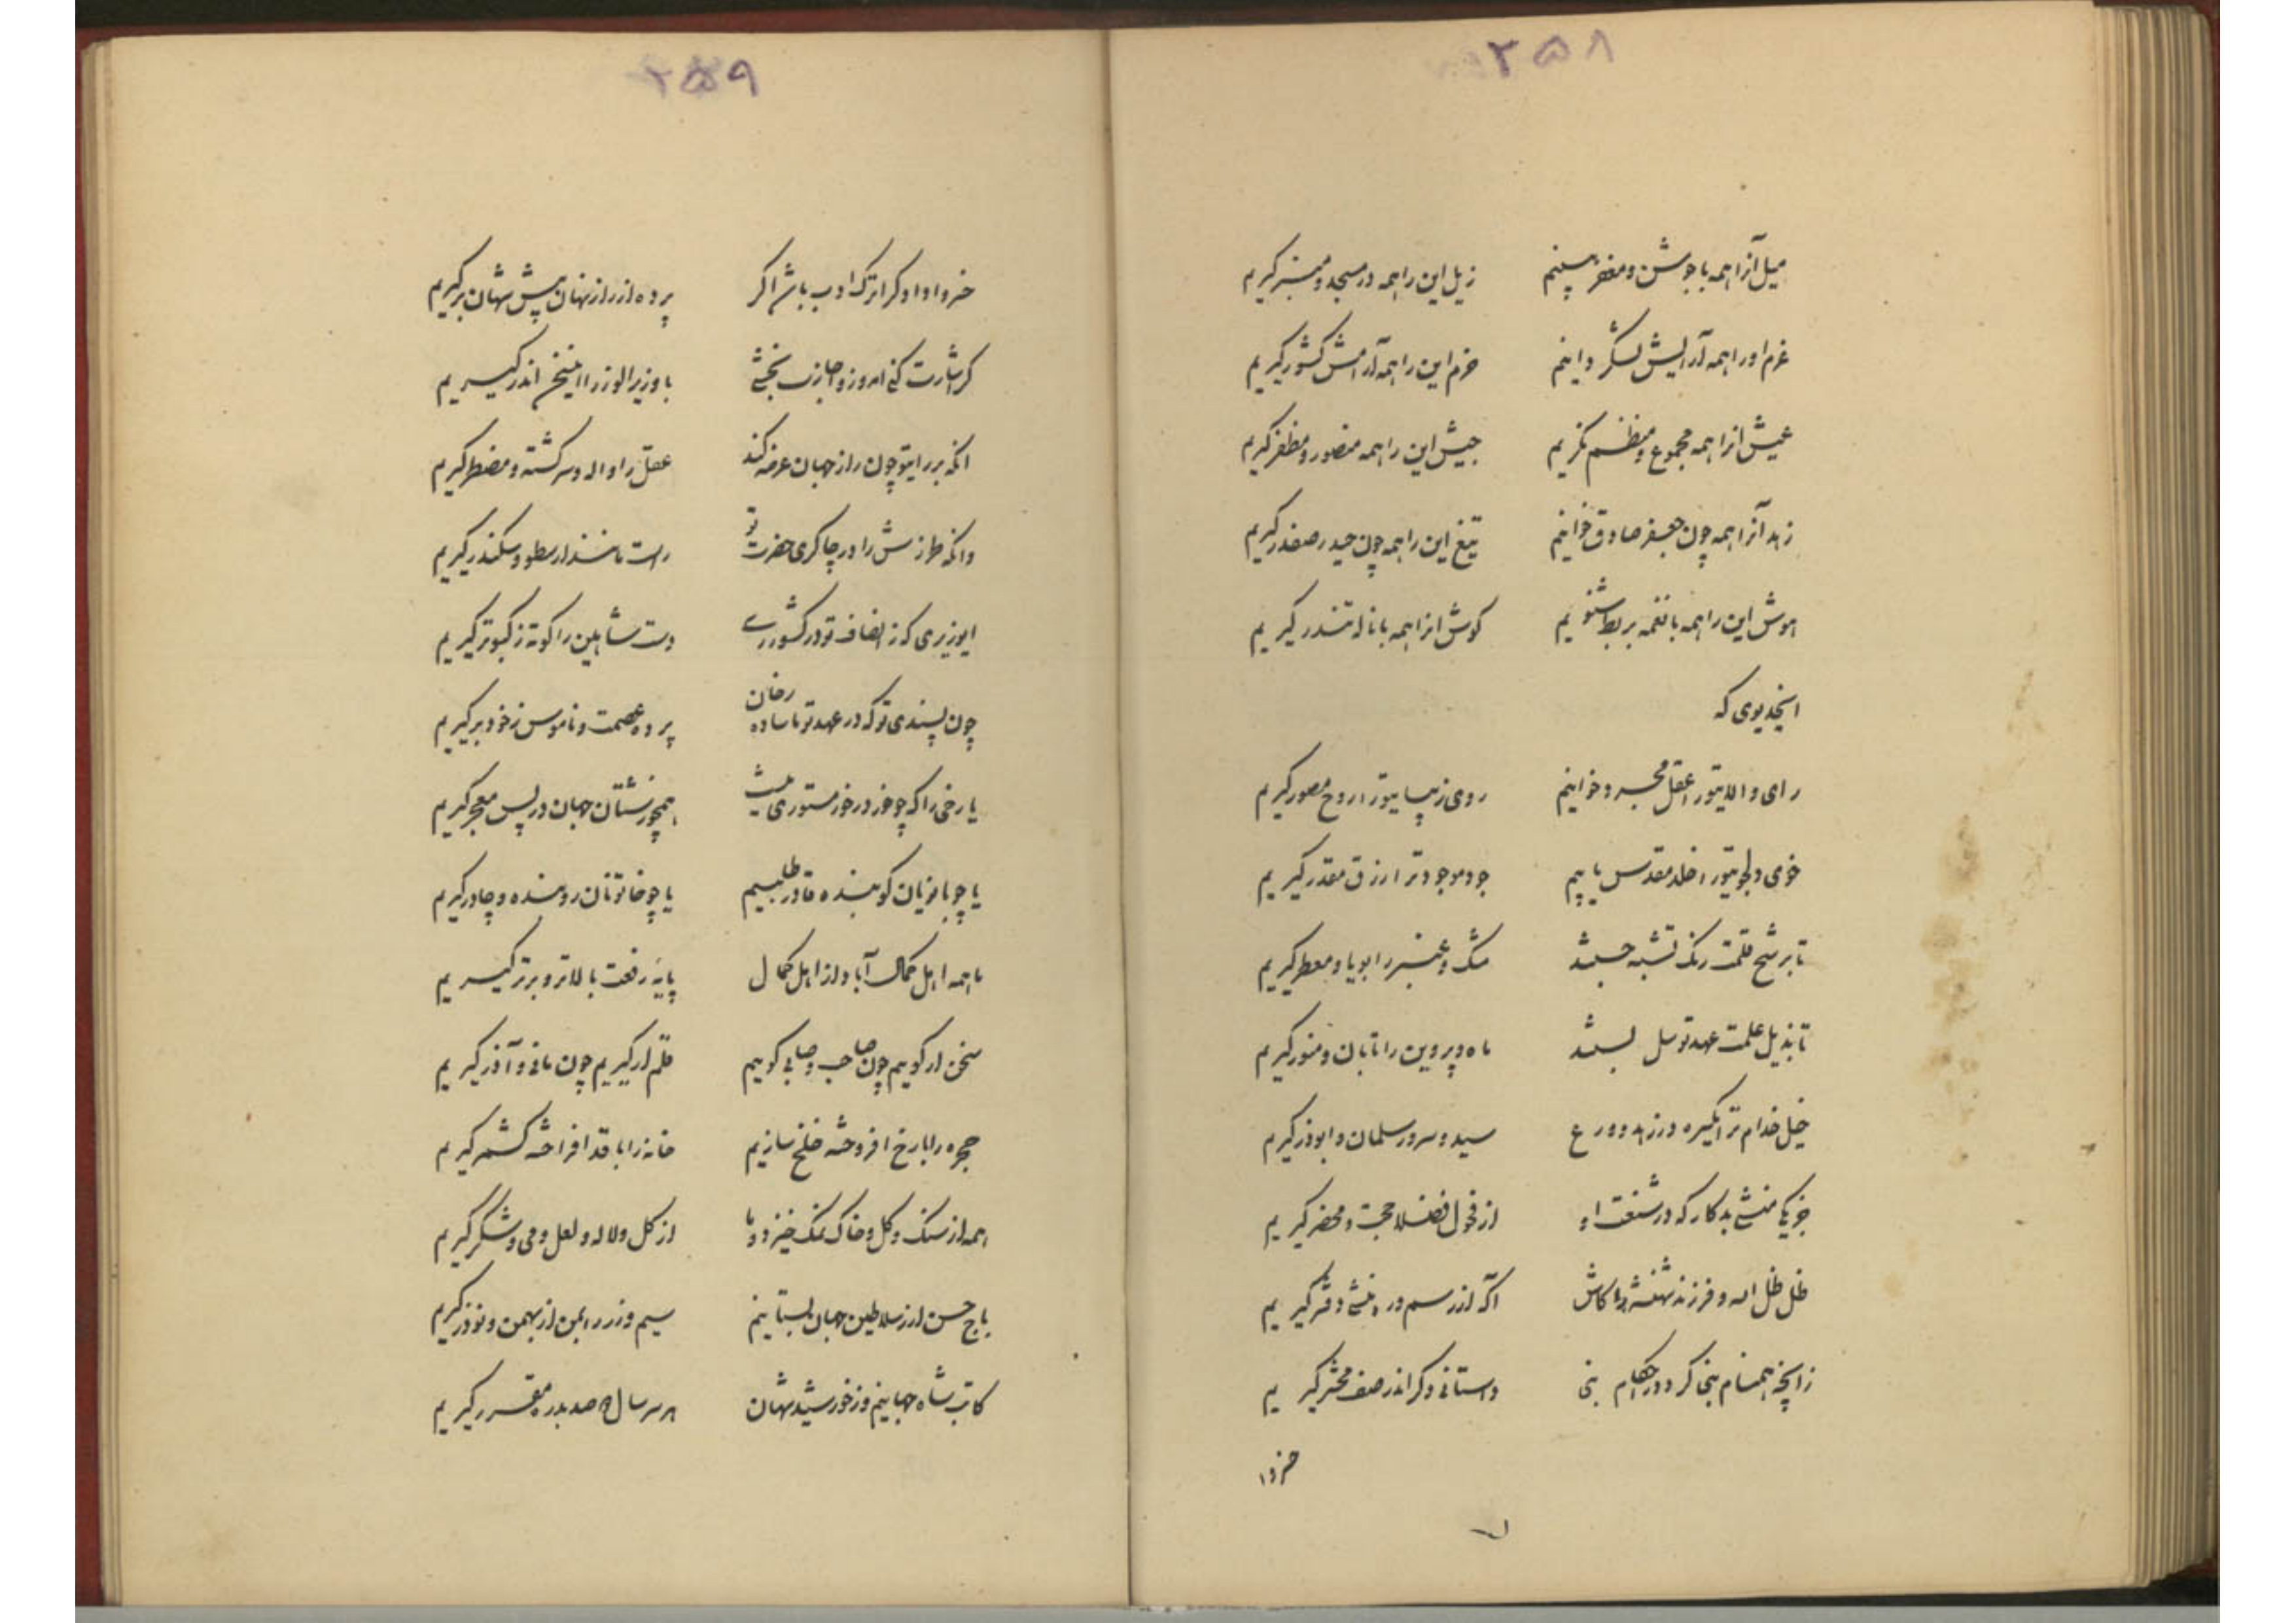 ۲۵۸
میل آنرا همه با جوشن و مغفر بینیم زیل این را همه در مسجد و منبر گیریم
عزم او را همه آرایش لشگر دانیم حزم این را همه آرامش کشور گیریم
عیش انرا همه مجموع و منظم نگریم جیش این را همه منصور و مظفر گیریم
زهد آنرا همه چون جعفر صادق خوانیم تیغ این را همه چون حیدر صفدر گیریم
هوش این را همه با نغمه بربط شنویم گوش انرا همه با ناله تندر گیریم
ایخدیوی که
رای والایتو را عقل مجرد خوانیم روی زیبایتو را روح مصور گیریم
خوی دلجویتو را خلد مقدس یابیم جود موجود ترا رزق مقدر گیریم
تا برشح قلمت رنگ تشبه جستند مشک و عنبر را بویا و معطر گیریم
تا بذیل علمت عهد توسل بستند ماه و پروین را تابان و منور گیریم
خیل خدام ترا یکسره در زهد و ورع سید و سرور سلمان و ابوذر گیریم
جز یکی منشی بدکار که در شنعت او از فحول فضلا حجت و محضر گیریم
ظل ظل اله و فرزند شهنشه را کاش اگه از رسم و ره منشی دفتر گیریم
زانچه همنام بنی کرد در احکام بنی داستانی دگر اندر صف محشر گیریم
خسروا
۲۵۹
خسروا دادگرا ترک ادب باشد اگر پرده از راز نهان پیش شهان برگیریم
گر اشارت کنی امروز و اجازت بخشی با وزیر الوزرا این سخن اندر گیریم
انکه بر رایتو چون راز جهان عرضه کند عقل را واله و سرگشته و مضطر گیریم
وانکه طرازش را در چاکری حضرت تو راست مانند ارسطو و سکندر گیریم
ایوزیری که ز انصاف تو در کشور ری دست شاهین را کوته ز کبوتر گیریم
چون پسندی تو که در عهد تو ما ساده رخان پرده عصمت و ناموس ز خود برگیریم
یا رخی را که چو خور در خور مستوری نیست همچو زشتان جهان در پس معجر گیریم
یا چو بازیان گوینده قادر طلبیم یا چو خاتونان روبنده و چادر گیریم
ما همه اهل کمال آبا و از اهل کمال پایه رفعت بالاتر و برتر گیریم
سخن ار گوییم چون صاحب و صابی گوییم قلم ار گیریم چون مانی و آذر گیریم
حجره را با رخ افروخته خلخ سازیم خانه را با قد افراخته کشمر گیریم
همه از سنگ و گل و خاک نمک خیزد و ما از گل و لاله و لعل و می و شکر گیریم
باج حسن از سلاطین جهان بستانیم سیم و زر را بمن از بهمن و نوذر گیریم
کاتب شاه جهانیم و ز خورشید شهان هر سر سال صد بدره مقرر گیریم